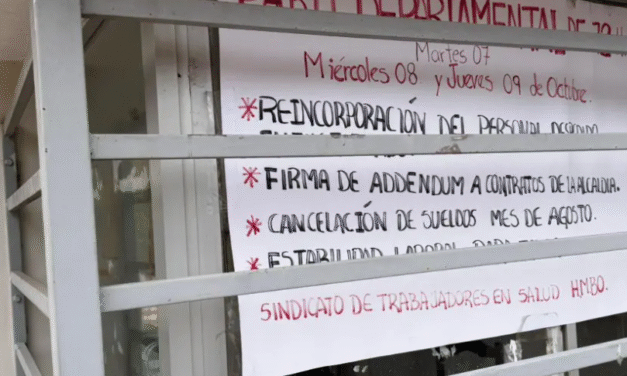 DEPARTAMENTAL DE
Martes 07
Miércoles 08 y Jueves 09 de Octubre.
*REINCORPORACIÓN DEL PERSONAL
* FIRMA DE ADDENDUM A CONTRATOS DE LA ALCALDIA.
* CANCELACIÓN DE SUELDOS MES DE AGOSTO.
* ESTABILIDAD LABORAL PARA
SINDICATO DE TRABAJADORES EN SALUD HMBO.